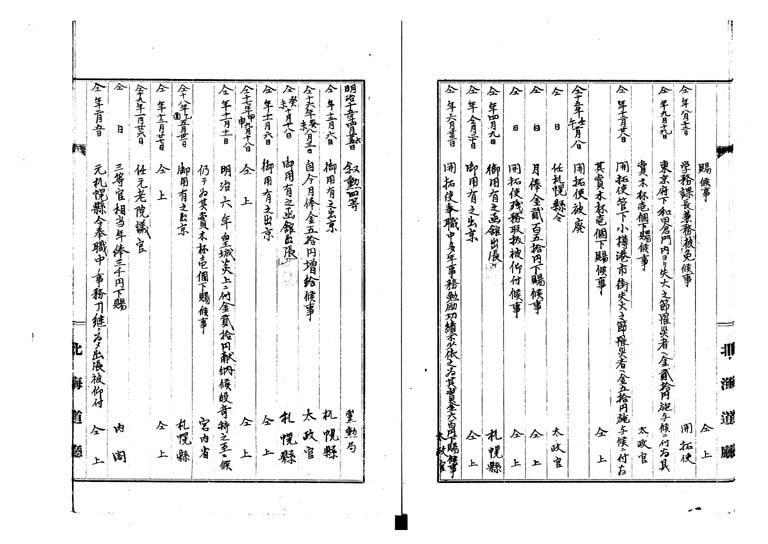 賜候事 仝上
仝年八月十三日 学務課長兼務被免候事 開拓使
仝年九月十九日 東京府下和田倉門内ヨリ失火之節罹災者ヘ金貳拾円施与候ニ付為其
賞木杯壱個下賜候事 太政官
仝年十二月廿八日 開拓使管下小樽港市街失火之節罹災者ヘ金五拾円施与候ニ付為
其賞木杯壱個下賜候事 仝上
仝十五年二月八日 開拓使被廃
仝日 任札幌縣令 太政官
仝日 月俸金貳百五拾円下賜候事 仝上
仝日 開拓使残務取扱被仰付候事 仝上
仝年四月九日 御用有之函館出張 札幌縣
仝年 月三十日 御用有之出京 仝上
仝年六月 日 開拓使奉職中多年事務勉励功績不少依之為其賞金六百円下賜候事 太政官
北海道廳
明治十五年 月 日 叙勲四等 賞勲局
仝年十二月六日 御用有之出京 札幌縣
仝十六年 八月 日 自今月俸金五拾円増給候事 太政官
仝 十月廿八日 御用有之函館出張 札幌縣
仝年十一月六日 御用有之出京 仝上
仝十七年 月十八日 仝上 仝上
仝年十一月十一日 明治六年皇城炎上ニ付金貳拾円献納候段奇特之至ニ候
仍テ為其賞木杯壱個下賜候事 宮内省
仝十八年 五月廿二日 御用有之出京 札幌縣
仝年十二月廿七日 仝上 仝上
仝十九年一月廿六日 任元老院議官
仝日 三等官相当年俸三千円下賜 内閣
仝年二月 日 元札幌縣令奉職中ノ事務引継ノ為メ出張被仰付 仝上
北海道廳